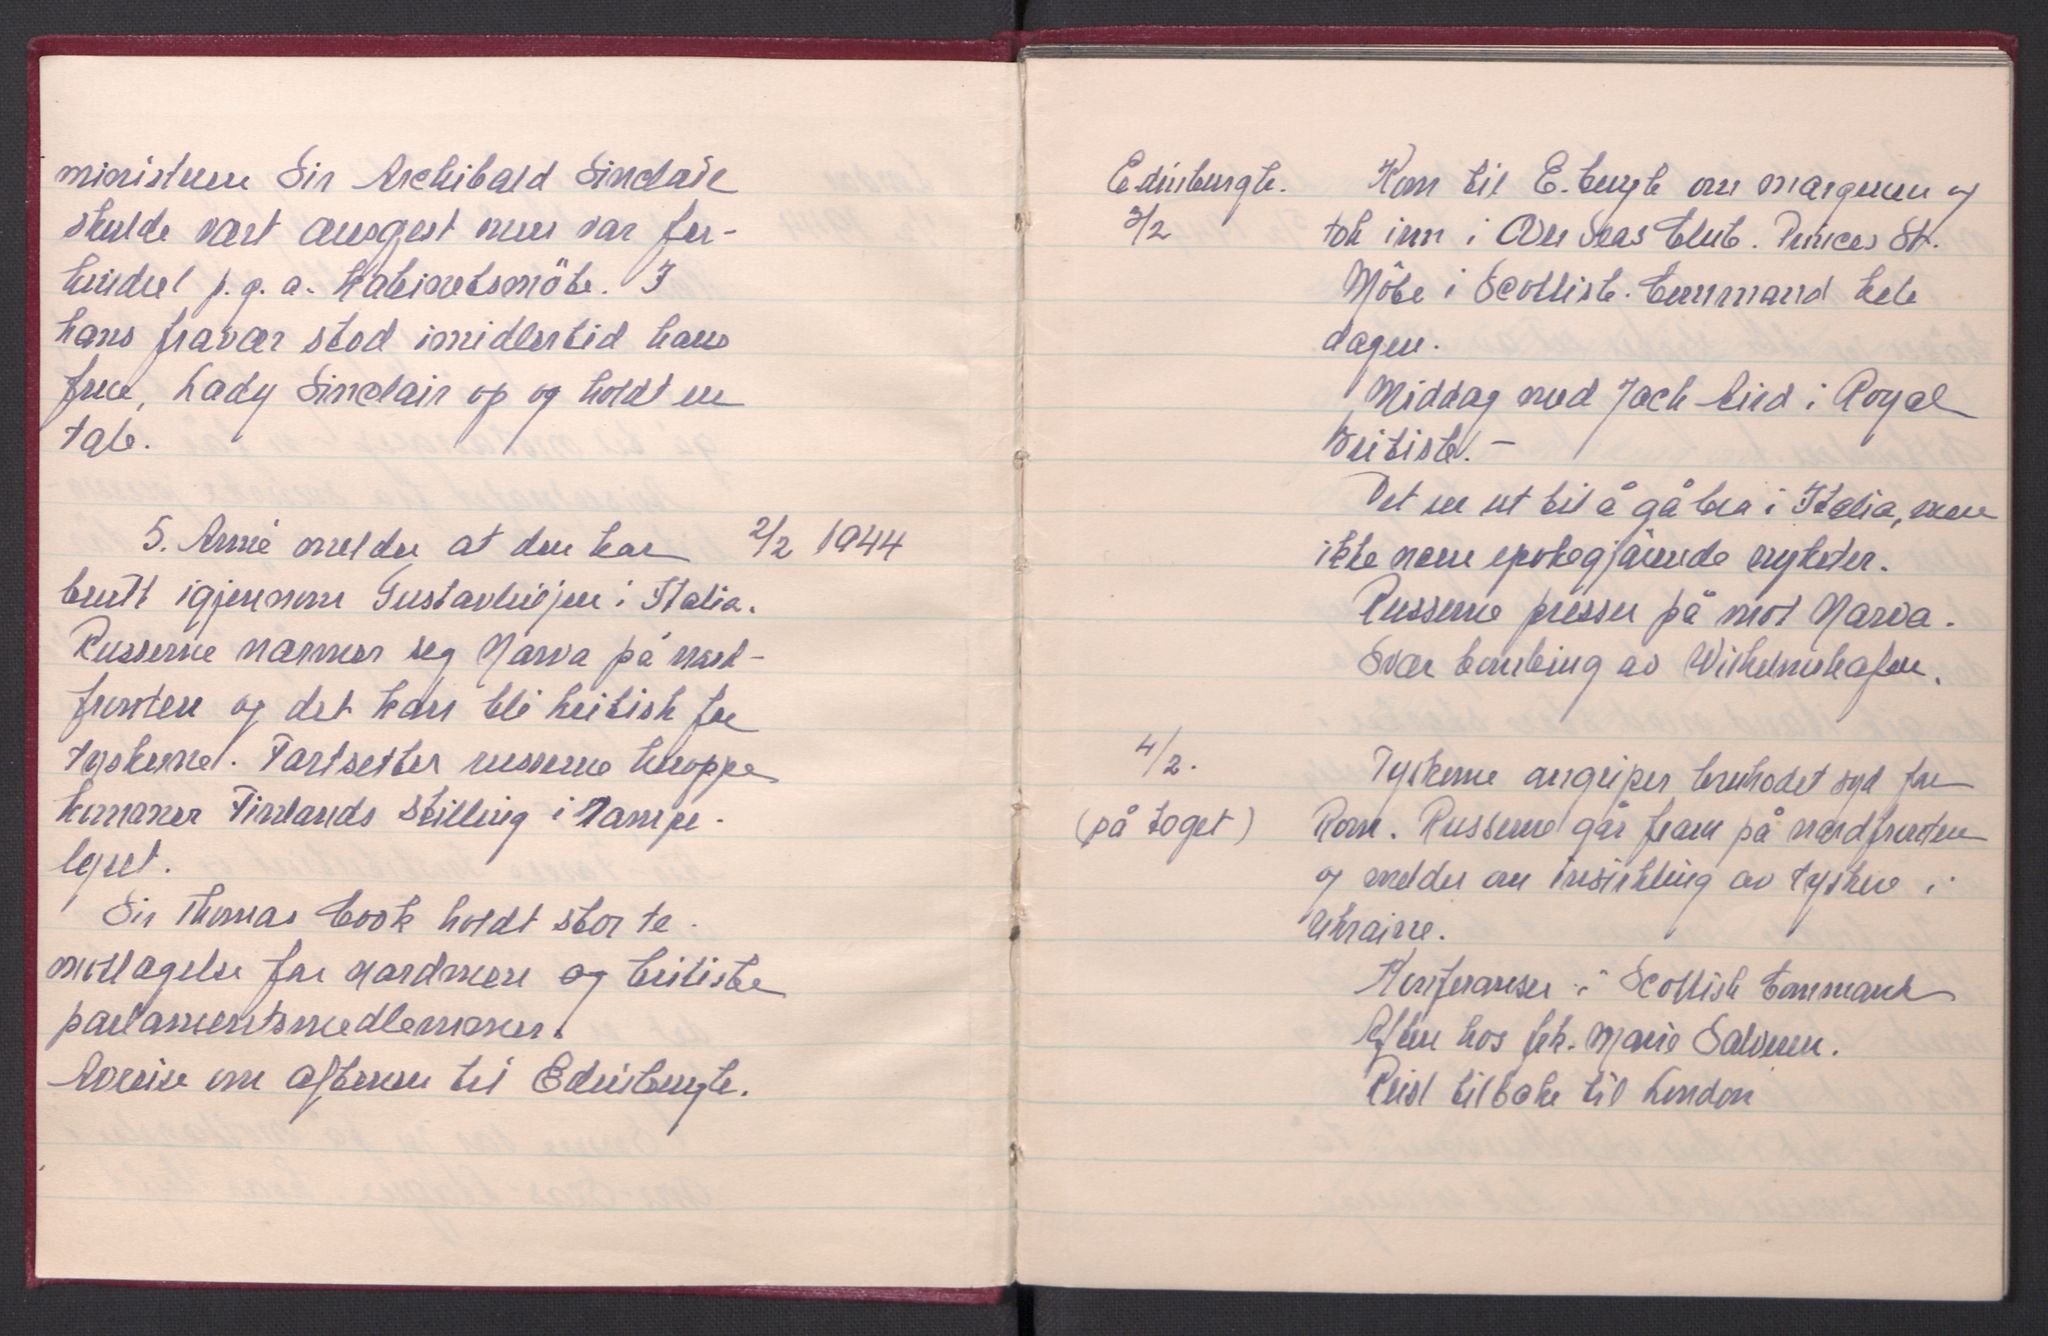 ministeren Sir Archibald Sinclair
skulde vært æresgjest men var for-
hindret p.g.a. Kabinetsmöte. I
hans fravær stod imidlertid hans
frue, Lady Sinclair op og holdt en
tale.
5. Armé melder at den har 2/2 1944
brutt igjennom Gustavlinjen i Italia.
Russerne nærmer seg Narva på nord-
fronten og det kan bli kritisk for
tyskerne. Fortsetter russerne kuoppe
kommer Finlands stilling i stöpe-
skjeen.
Sir Thomas Cook holdt stor te-
mottagelse for nordmenn og britiske
parlamentsmedlemmer.
Avreise om aftenen til Edinburgh.
Edinburgh. Kom til E.burgh om morgenen og
3/2 tok inn i Over Seas Club. Princes St.
Möte i Scottish. Command hele
dagen.
Middag med Jack Aird i Royal
British. -
Det ser ut til å gå bra i Italia, men
ikke noen epokegjörende nyheter.
Russerne presser på mot Narva.
Svær bombing av Wilhelmshafen.
4/2. Tyskerne angriper bruhodet syd for
(på toget) Rom. Russerne går fram på nordfronten
og melder om innsirkling av tyskere i
Ukraine.
Konferanser i Scottish Command
Aften hos frk. Marie Salvesen.
Reist tilbake til London